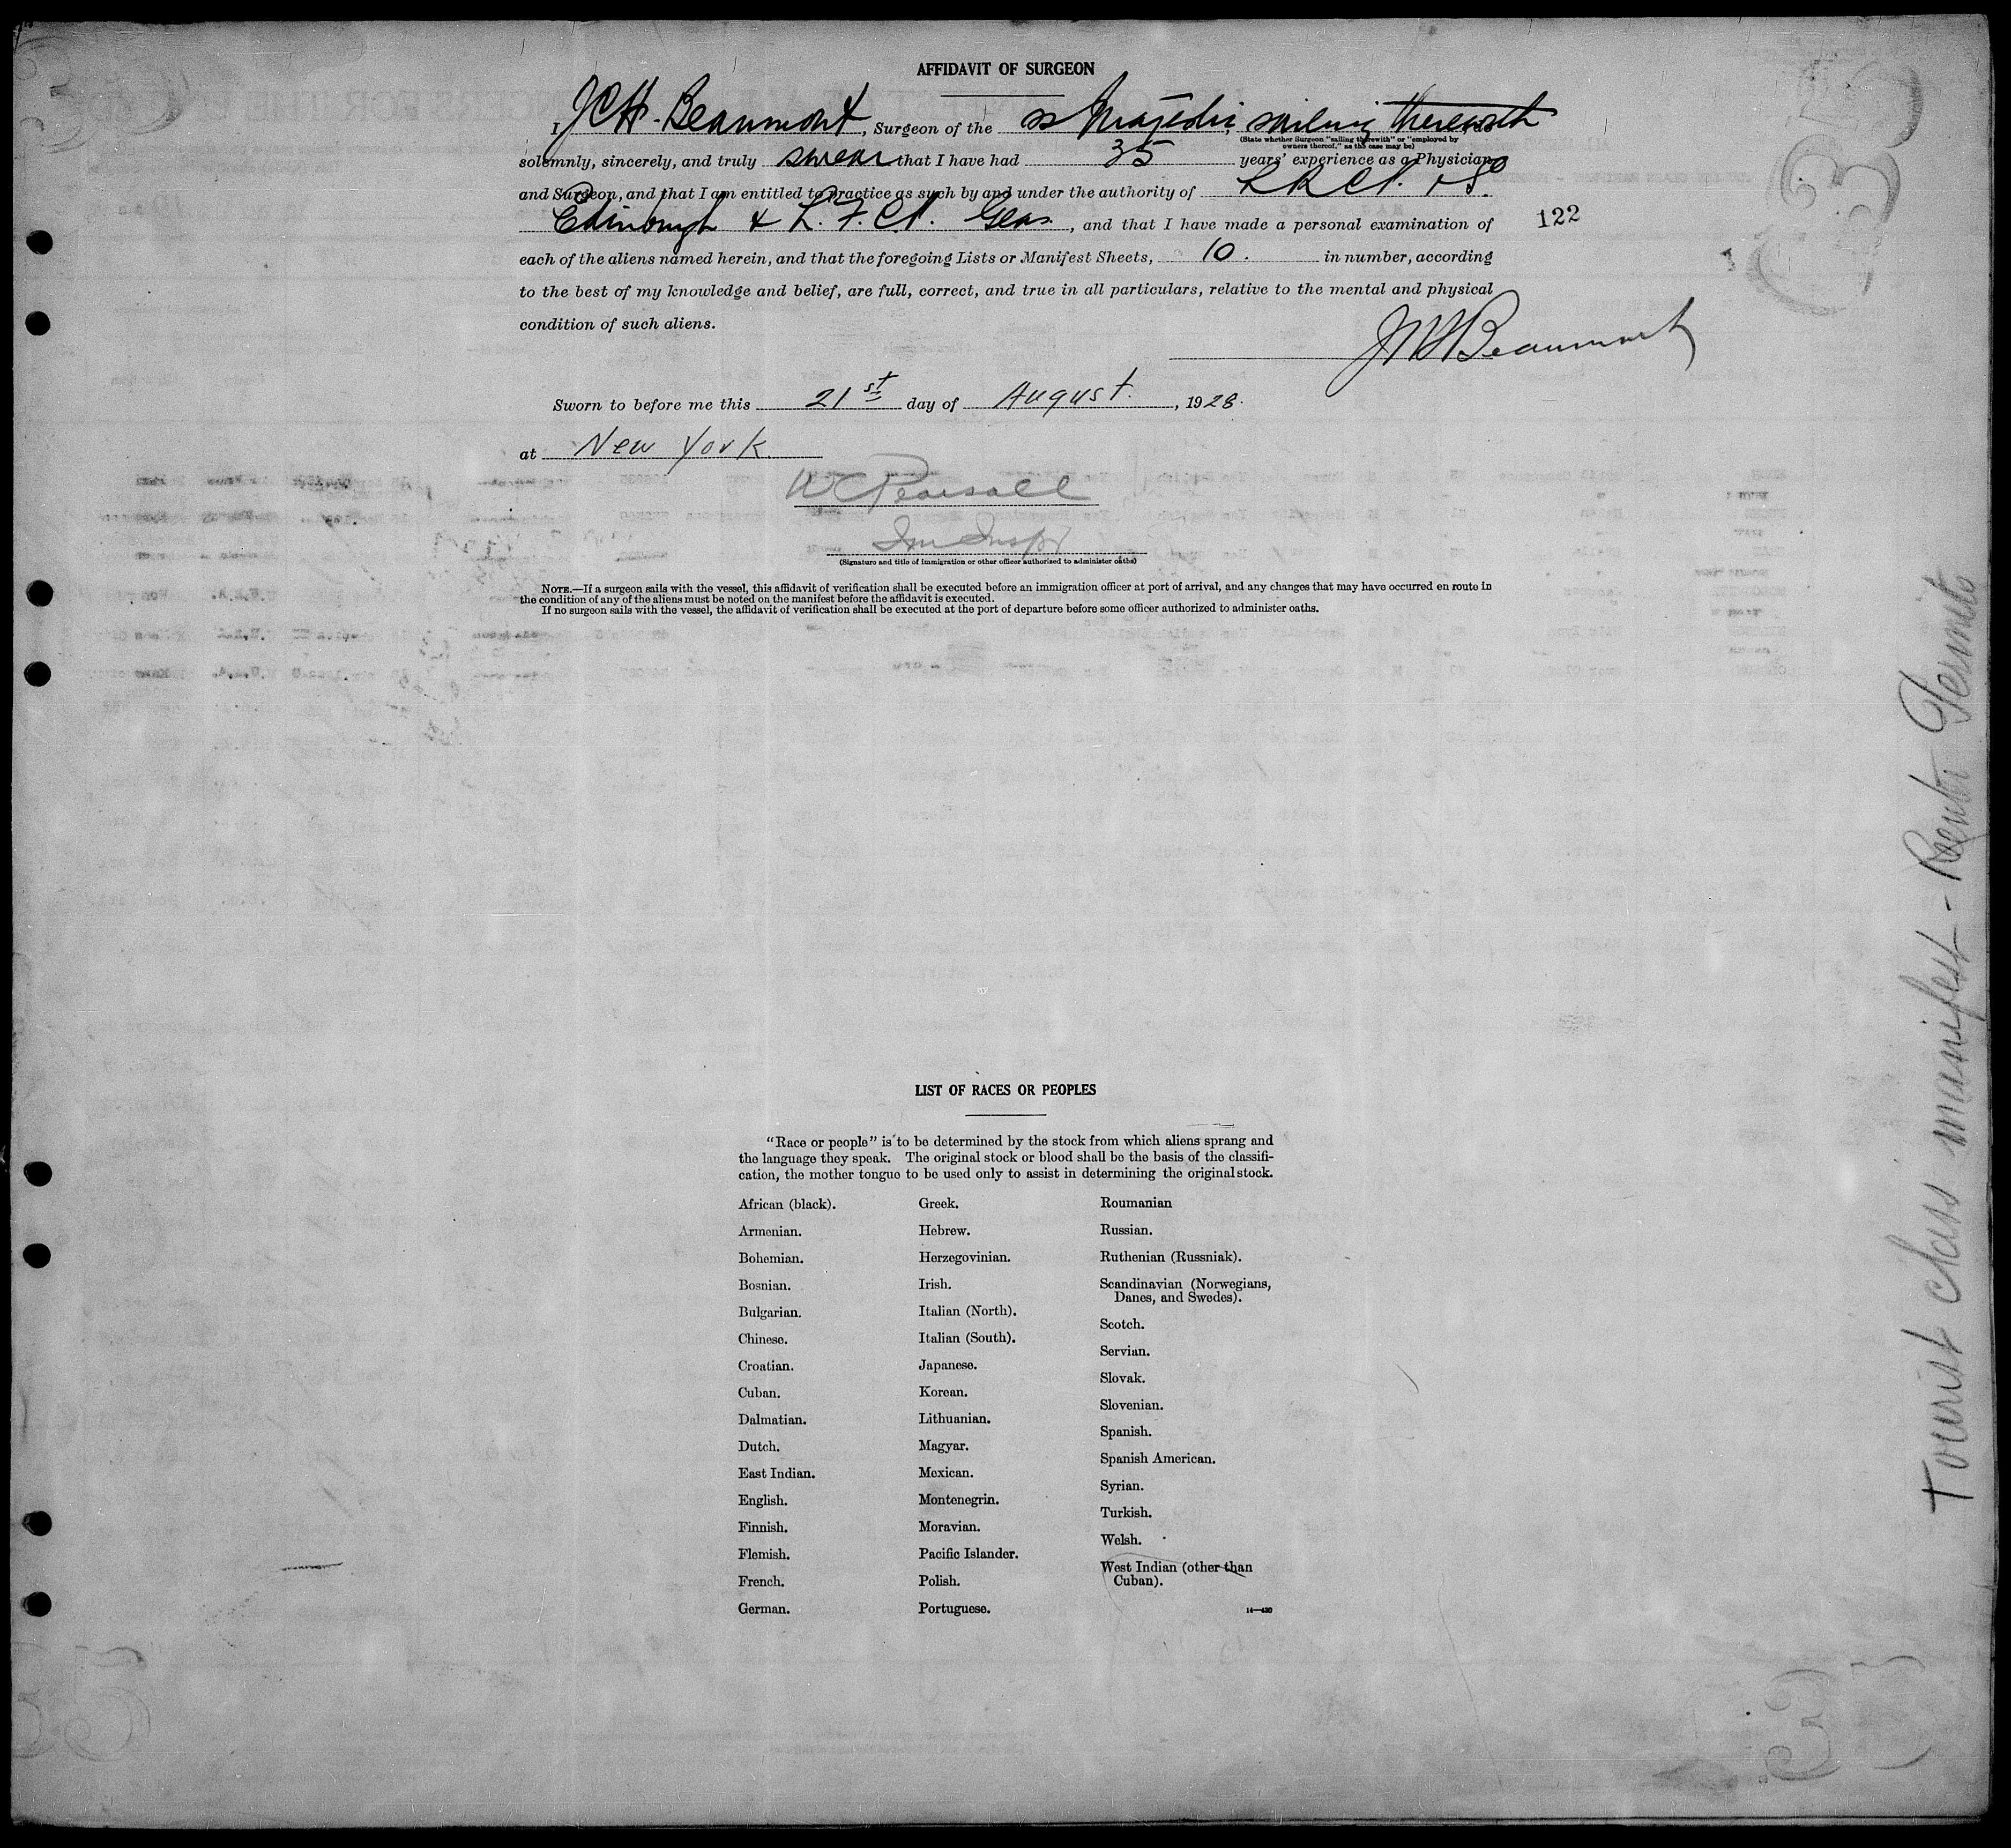 AFFIDAVIT OF SURGEON
I JCH. Beaumont, Surgeon of the ss Majestic, sailing therewith
(State whether Surgeon "sailing therewith" or "employed by
owners thereof," as the case may be)
solemnly, sincerely, and truly swear that I have had 35 years' experience as a Physician
and Surgeon, and that I am entitled to practice as such by and under the authority of
Edinburgh & Glas, and that I have made a personal examination of
122
each of the aliens named herein, and that the foregoing Lists or Manifest Sheets, 10. in number, according
to the best of my knowledge and belief, are full, correct, and true in all particulars, relative to the mental and physical
condition of such aliens.
JCH Beaumont
Sworn to before me this 21st day of August., 1928.
at New York
W C Pearsall
Im Inspr
(Signature and title of immigration or other officer authorized to administer oaths)
NOTE.—If a surgeon sails with the vessel, this affidavit of verification shall be executed before an immigration officer at port of arrival, and any changes that may have occurred en route in
the condition of any of the aliens must be noted on the manifest before the affidavit is executed.
If no surgeon sails with the vessel, the affidavit of verification shall be executed at the port of departure before some officer authorized to administer oaths.
Tourist class manifest - Permits
LIST OF RACES OR PEOPLES
"Race or people" is to be determined by the stock from which aliens sprang and
the language they speak. The original stock or blood shall be the basis of the classifi-
cation, the mother tongue to be used only to assist in determining the original stock.
African (black).
Armenian.
Bohemian.
Bosnian.
Bulgarian.
Chinese.
Croatian.
Cuban.
Dalmatian.
Dutch.
East Indian.
English.
Finnish.
Flemish.
French.
German.
Greek.
Hebrew.
Herzegovinian.
Irish.
Italian (North).
Italian (South).
Japanese.
Korean.
Lithuanian.
Magyar.
Mexican.
Montenegrin.
Moravian.
Pacific Islander.
Polish.
Portuguese.
Roumanian
Russian.
Ruthenian (Russniak).
Scandinavian (Norwegians,
Danes, and Swedes).
Scotch.
Servian.
Slovak.
Slovenian.
Spanish.
Spanish American.
Syrian.
Turkish.
Welsh.
West Indian (other than
Cuban).
14—430